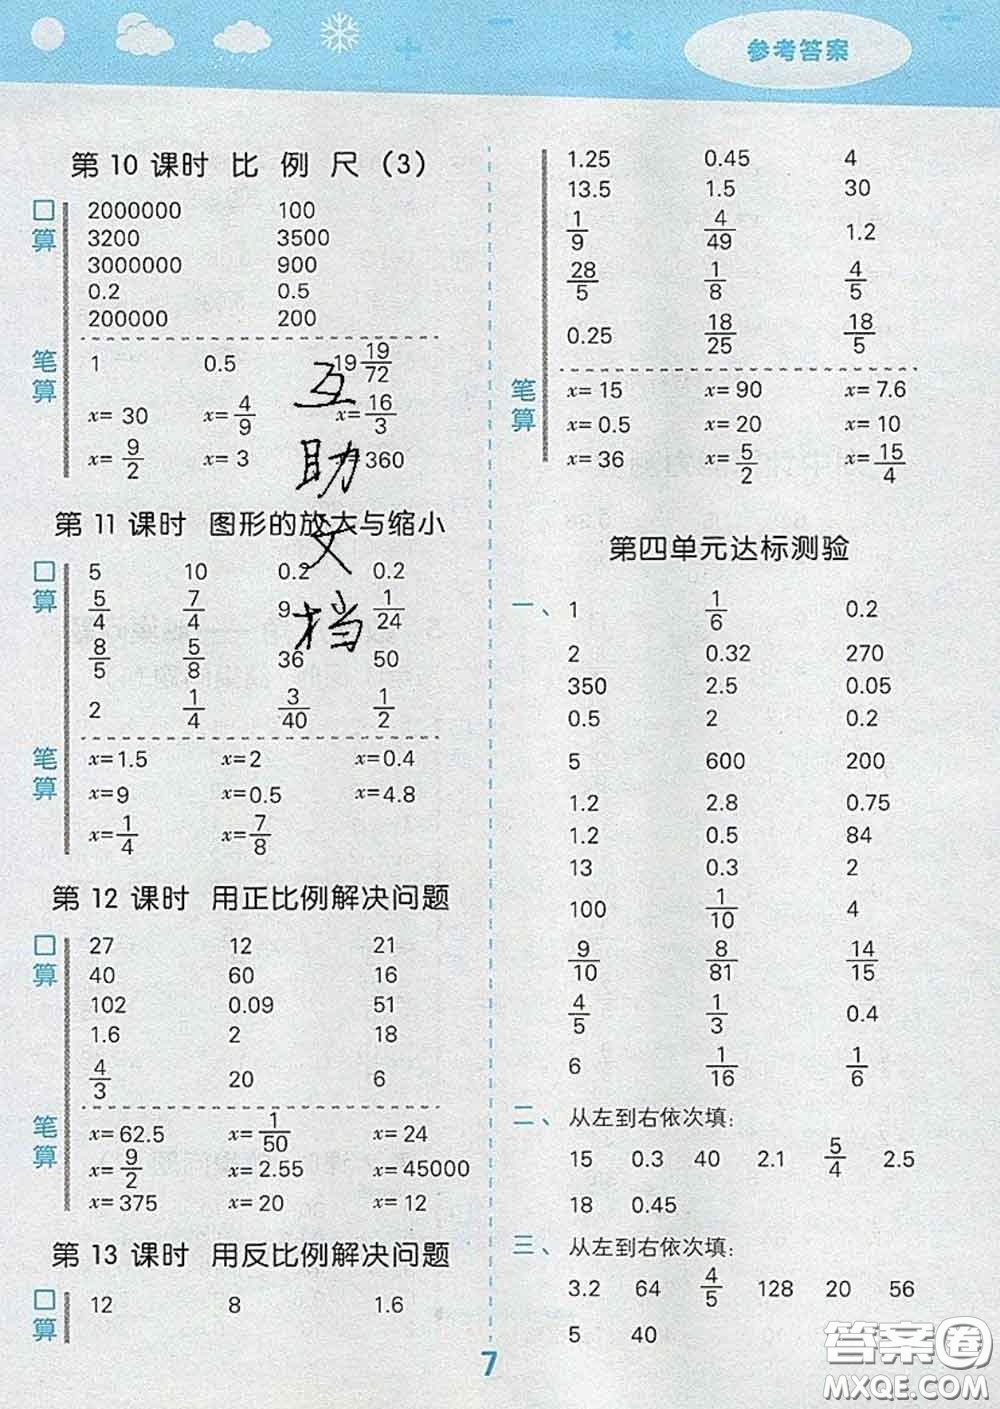 参考答案
第10课时 比例尺(3)
口算
2000000 100
3200 3500
3000000 900
0.2 0.5
200000 200
笔算
1 0.5 19 19/72
x=30 x=4/9 x=16/3
x=9/2 x=3 x=360
第11课时 图形的放大与缩小
口算
5 10 0.2 0.2
5/4 7/4 9 1/24
8/5 5/8 36 50
2 1/4 3/40 1/2
笔算
x=1.5 x=2 x=0.4
x=9 x=0.5 x=4.8
x=1/4 x=7/8
第12课时 用正比例解决问题
口算
27 12 21
40 60 16
102 0.09 51
1.6 2 18
4/3 20 6
笔算
x=62.5 x=1/50 x=24
x=9/2 x=2.55 x=45000
x=375 x=20 x=12
第13课时 用反比例解决问题
口算
12 8 1.6
1.25 0.45 4
13.5 1.5 30
1/9 4/49 1.2
28/5 1/8 4/5
0.25 18/25 18/5
笔算
x=15 x=90 x=7.6
x=0.5 x=20 x=10
x=36 x=5/2 x=15/4
第四单元达标测验
一、 1 1/6 0.2
2 0.32 270
350 2.5 0.05
0.5 2 0.2
5 600 200
1.2 2.8 0.75
1.2 0.5 84
13 0.3 2
100 1/10 4
9/10 8/81 14/15
4/5 1/3 0.4
6 1/16 1/6
二、从左到右依次填:
15 0.3 40 2.1 5/4 2.5
18 0.45
三、从左到右依次填:
3.2 64 4/5 128 20 56
5 40
7
互助文档
答案圈
MXQE.COM